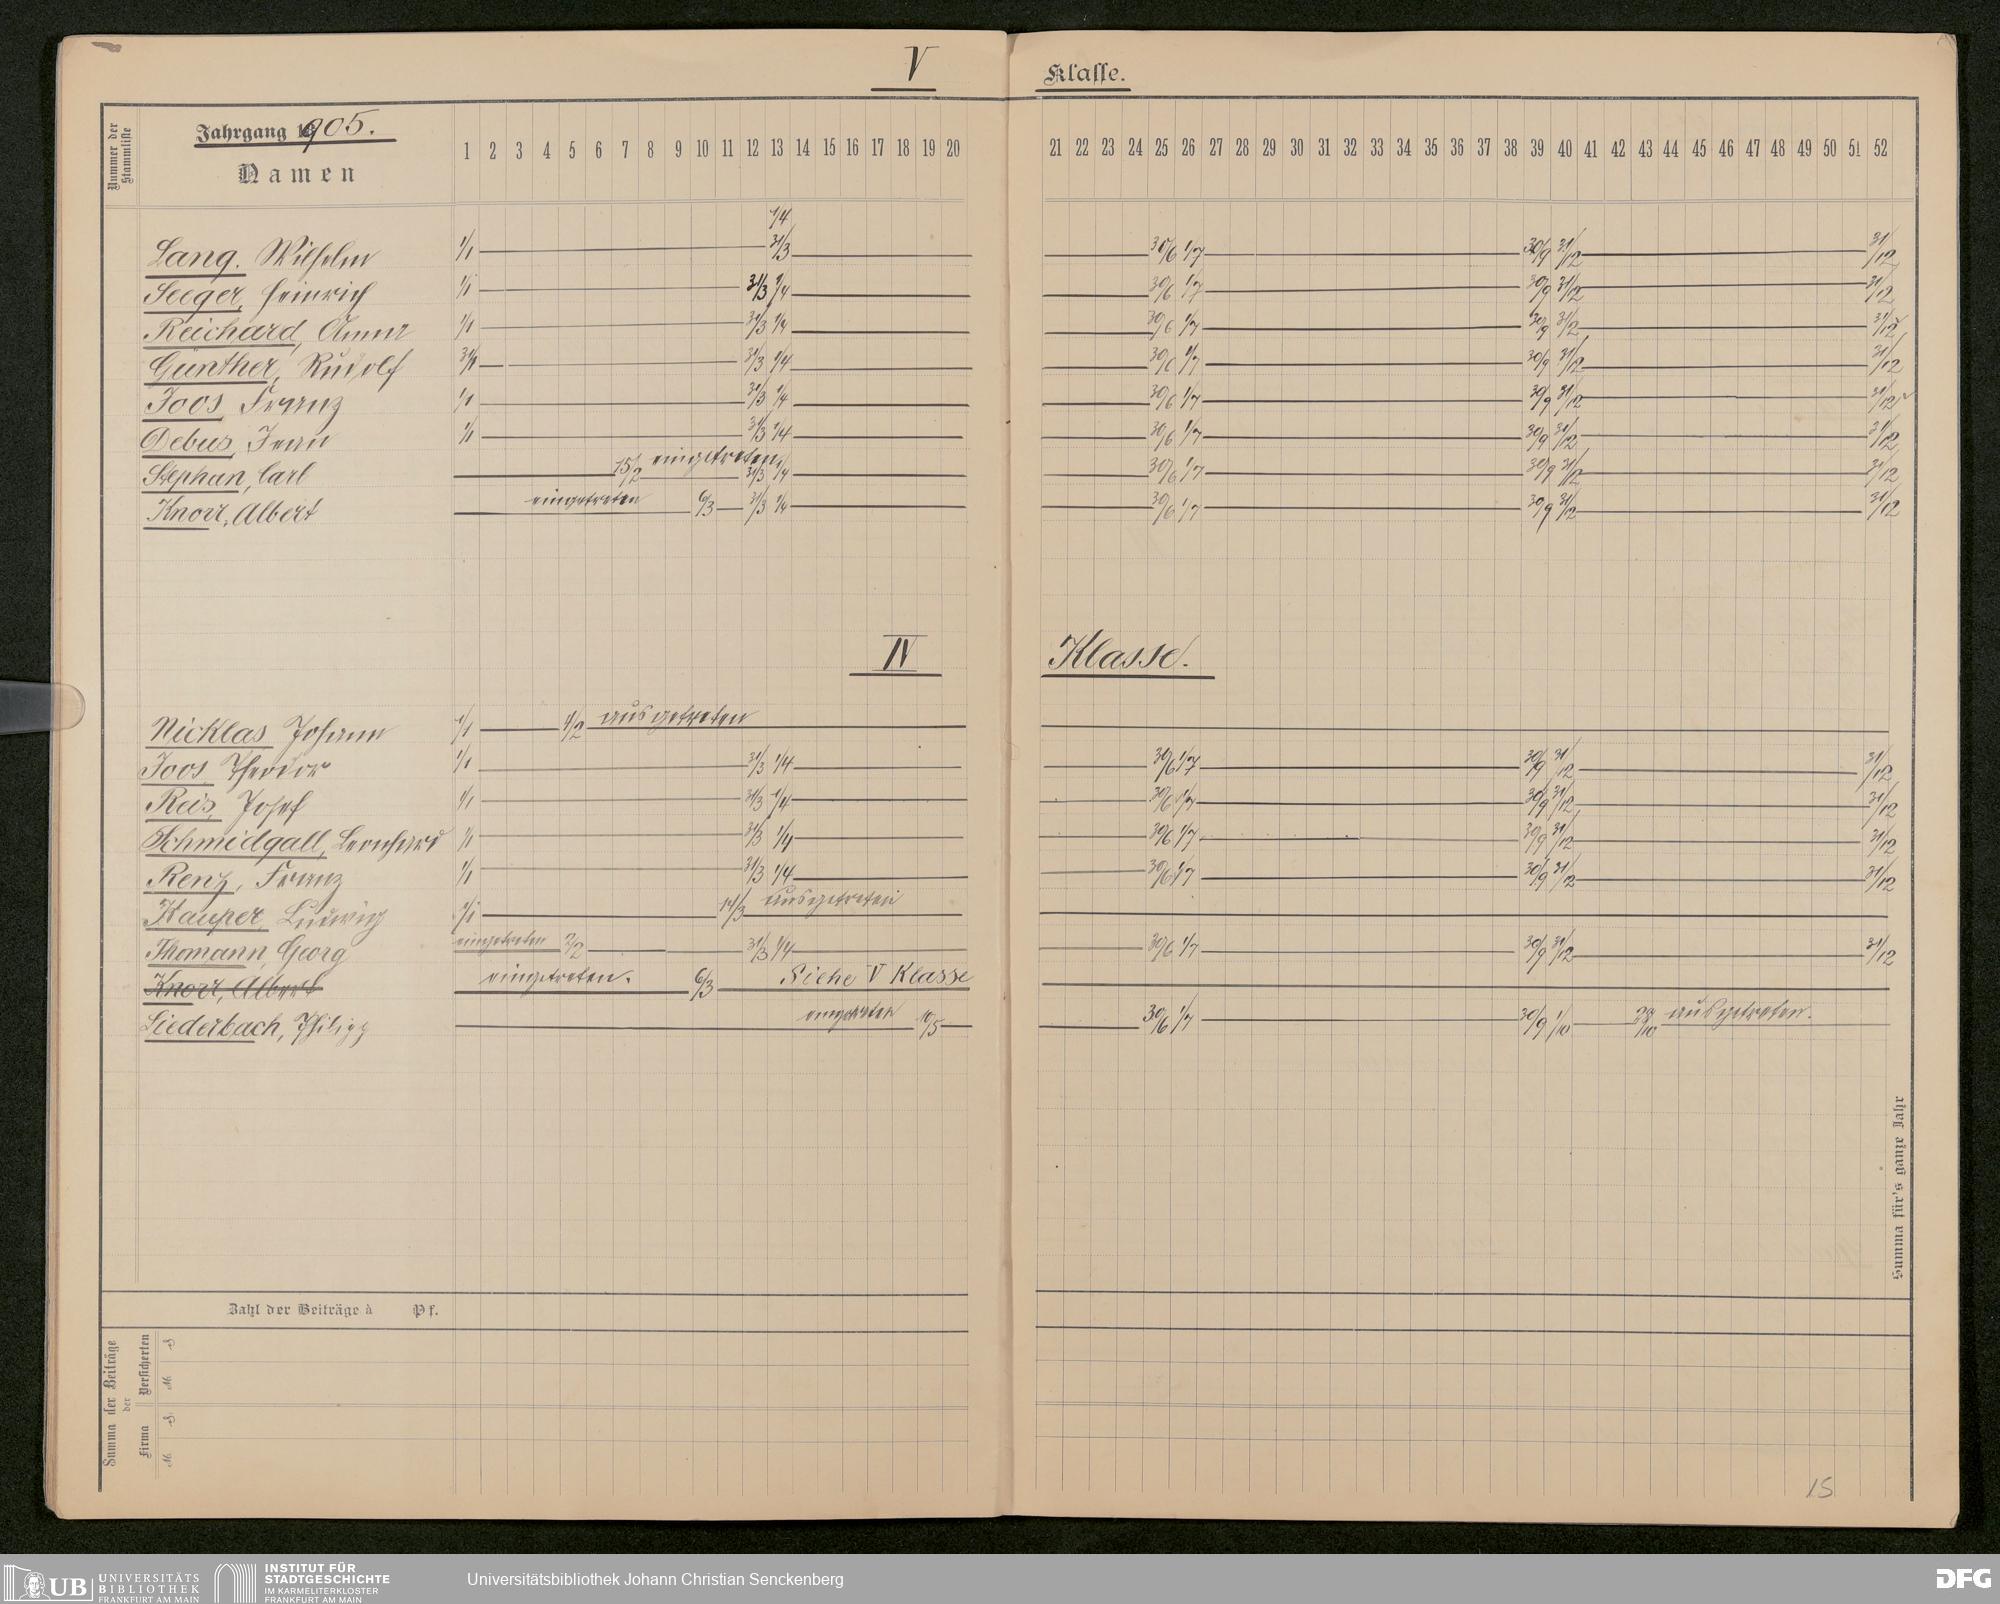 V Klasse.
Nummer der Stammliste
Jahrgang 1905.
Namen
1 2 3 4 5 6 7 8 9 10 11 12 13 14 15 16 17 18 19 20 21 22 23 24 25 26 27 28 29 30 31 32 33 34 35 36 37 38 39 40 41 42 43 44 45 46 47 48 49 50 51 52
1/4
Lang. Wilhelm 1/1 31/3 30/6 1/7 30/9 31/12 31/12
Seeger, Heinrich 1/1 31/3 1/4 30/6 1/7 30/9 31/12 31/12
Reichard, 1/1 31/3 1/4 30/6 1/7 30/9 31/12 31/12
Günther, Rudolf 31/3 1/4 30/6 1/7 30/9 31/12 31/12
Joos, Franz 1/1 31/3 1/4 30/6 1/7 30/9 31/12 31/12
Debus, Jean 1/1 31/3 1/4 30/6 1/7 30/9 31/12 31/12
Stephan, Carl 15/2 eingetreten 31/3 1/4 30/6 1/7 30/9 31/12 31/12
Knorr, Albert eingetreten 6/3 31/3 1/4 30/6 1/7 30/9 31/12 31/12
IV Klasse.
Nicklas Johann 1/1 4/2 ausgetreten
Joos, Theodor 1/1 31/3 1/4 30/6 1/7 30/9 31/12 31/12
Reis, Josef 1/1 31/3 1/4 30/6 1/7 30/9 31/12 31/12
Schmidgall, Leonhard 1/1 31/3 1/4 30/6 1/7 30/9 31/12 31/12
Renz, Franz 1/1 31/3 1/4 30/6 1/7 30/9 31/12 31/12
Kauper, Ludwig 1/1 14/3 ausgetreten
Thomann, Georg eingetreten 2/2 31/3 1/4 30/6 1/7 30/9 31/12 31/12
Knorr, Albert eingetreten. 6/3 Siehe V Klasse
Liederbach, Philipp eingetreten 10/5 30/6 1/7 30/9 1/10 28/10 ausgetreten.
Summa für's ganze Jahr
Zahl der Beiträge à Pf.
Summa der Beiträge
der
Versicherten
Firma
M S
M S
15
UB UNIVERSITÄTS
BIBLIOTHEK
FRANKFURT AM MAIN
INSTITUT FÜR
STADTGESCHICHTE
IM KARMELITERKLOSTER
FRANKFURT AM MAIN
Universitätsbibliothek Johann Christian Senckenberg
DFG